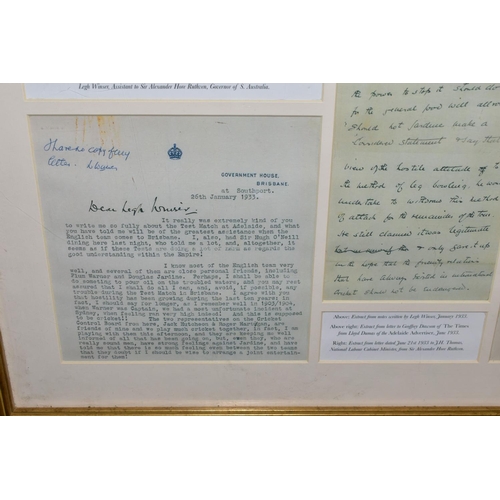 Legh Winser, Assistant to Sir Alexander Hore Ruthven, Governor of S. Australia.
GOVERNMENT HOUSE,
BRISBANE.
at Southport.
26th January 1933.
Dear Legh Winser
It really was extremely kind of you
to write me so fully about the Test Match at Adelaide, and what
you have told me will be of the greatest assistance when the
English team comes to Brisbane. I, also, had Sir Hugh O'Neill
dining here last night, who told me a lot, and, altogether, it
seems as if these Tests are doing a lot of harm as regards the
good understanding within the Empire!
I know most of the English team very
well, and several of them are close personal friends, including
Plum Warner and Douglas Jardine. Perhaps, I shall be able to
do something to pour oil on the troubled waters, and you may rest
assured that I shall do all I can, and, avoid, if possible, any
trouble during the Test Match in Brisbane. I agree with you
that hostility has been growing during the last ten years; in
fact, I should say for longer, as I remember well in 1903/1904,
when Warner was Captain, we had a most unfortunate incident at
Sydney, when feeling ran very high indeed! And this is supposed
to be cricket!! The two representatives on the Cricket
Control Board from here, Jack Hutcheon & Roger Hartigan, are
friends of mine and we play much cricket together, in fact, I am
playing with them this afternoon, and they are keeping me well
informed of all that has been going on, but, even they, who are
really sound men, have strong feelings against Jardine, and have
told me that there is so much feeling even between the two teams
that they doubt if I should be wise to arrange a joint entertain-
ment for them!
the power to stop it should do
for the general good will allow
should not Jardine make a
statement & say that
view of the hostile attitude of to
the method of leg bowling he was
undertake to withdraw this method
of attack for the remainder of the tour.
He still claimed it was legitimate
& only gave it up
with the hope that the friendly relations
that have always existed in international
cricket should not be endangered.
Above: Extract from notes written by Legh Winser, January 1933.
Above right: Extract from letter to Geoffrey Dawson of The Times
from Lloyd Dumas of the Adelaide Advertiser, June 1933.
Right: Extract from letter dated June 21st 1933 to J.H. Thomas,
National Labour Cabinet Minister, from Sir Alexander Hore Ruthven.